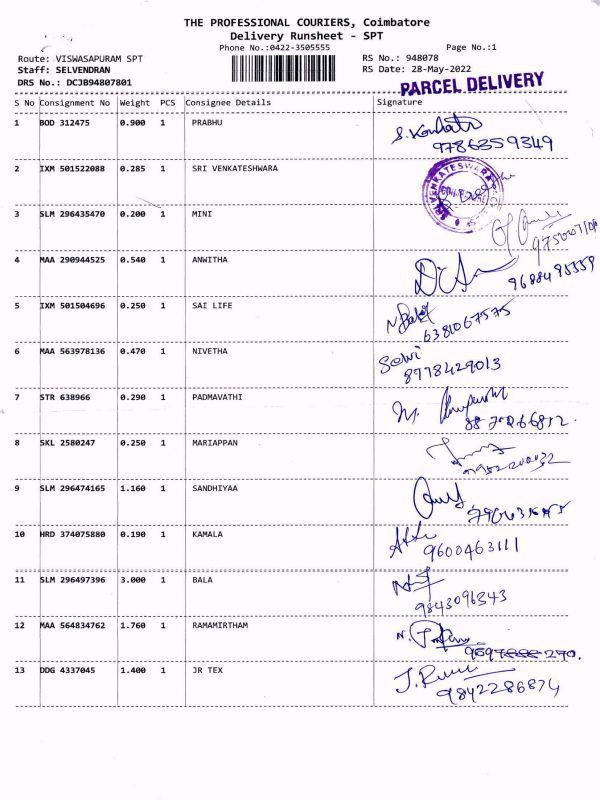 THE PROFESSIONAL COURIERS, Coimbatore
Delivery Runsheet - SPT
Phone No.:0422-3505555 Page No.:1
Route: VISWASAPURAM SPT RS No.: 948078
Staff: SELVENDRAN RS Date: 28-May-2022
DRS No.: DCJB94807801
PARCEL DELIVERY
S No Consignment No Weight PCS Consignee Details Signature
1 BOD 312475 0.900 1 PRABHU
7786359349
2 IXM 501522088 0.285 1 SRI VENKATESHWARA
3 SLM 296435470 0.200 1 MINI
4 MAA 290944525 0.540 1 ANWITHA
9688495359
5 IXM 501504696 0.250 1 SAI LIFE
6381067575
6 MAA 563978136 0.470 1 NIVETHA
Selvi
8978429013
7 STR 638966 0.290 1 PADMAVATHI
8 SKL 2580247 0.250 1 MARIAPPAN
9 SLM 296474165 1.160 1 SANDHIYAA
10 HRD 374075880 0.190 1 KAMALA
9600463111
11 SLM 296497396 3.000 1 BALA
9843096343
12 MAA 564834762 1.760 1 RAMAMIRTHAM
13 DDG 4337045 1.400 1 JR TEX
9842286874